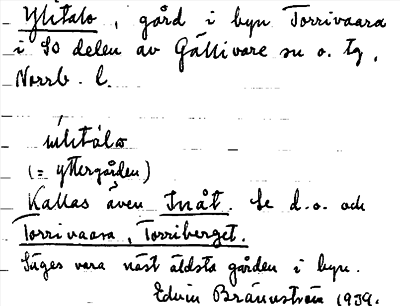 Ylitalo, gård i byn Torrivaara
i SO delen av Gällivare sn o. tg,
Norrb. l.
úlitálo
(= yttergården)
Kallas även Inåt. Se d.o. och
Torrivaara, Torriberget.
Säges vara näst äldsta gården i byn.
Edvin Brännström 1939.